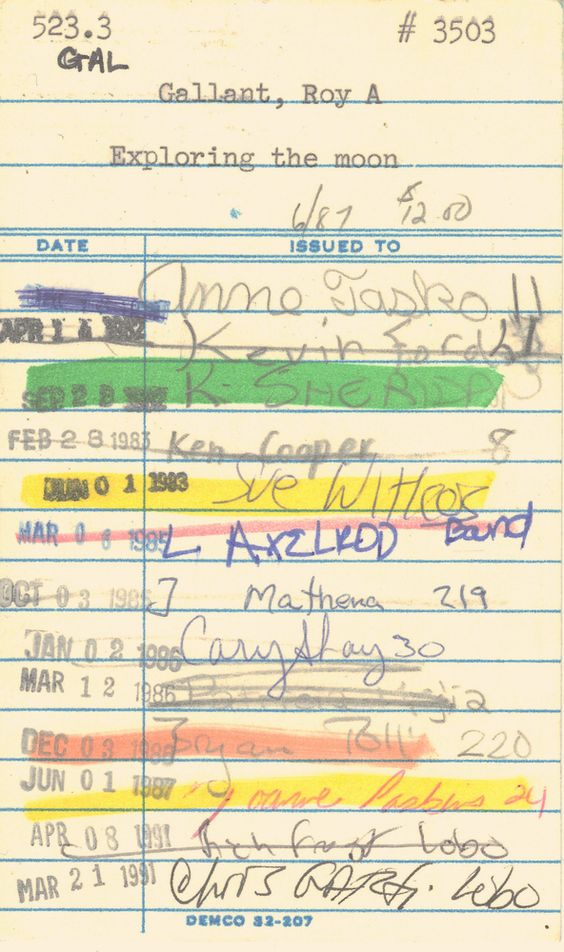 523.3 # 3503
GAL
Gallant, Roy A
Exploring the moon
6/87 $12.00
DATE ISSUED TO
Anne Tasko 11
APR 14 1982 Kevin Ford
SEP 28 K. SHERIDAN
FEB 28 1983 Ken Cooper 8
JUN 01 1983 Sue Witcos
MAR 08 1985 L AXELROD Band
OCT 03 1985 J Mathena 219
JAN 02 1986 Cary Shay 30
MAR 12 1986
DEC 03 1986 Bryan 220
JUN 01 1987 Joanne 24
APR 08 1991 Rich Frost Lobo
MAR 21 1991 Chris Lobo
DEMCO 32-207